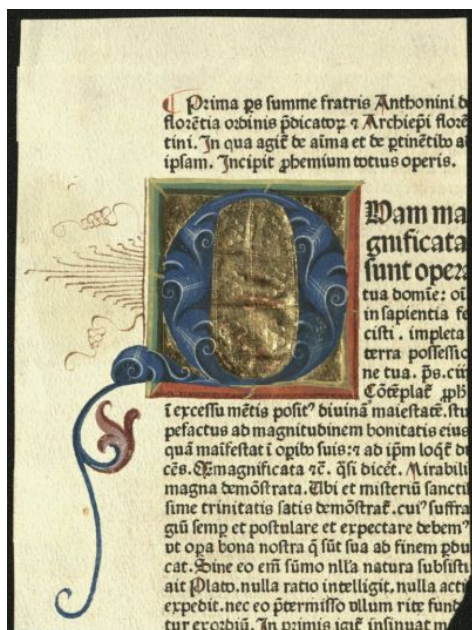 Prima ꝑs summe fratris Anthonini d
florētia ordinis p̄dicatoꝝ ⁊ Archiepi florē
tini. In qua agit̄ de aīma et de ꝑtinētibꝰ ad
ipsam. Incipit ꝓhemium totius operis.
Q
Uam ma
gnificata
sunt opera
tua domīe: oī
in sapientia fe
cisti. impleta
terra possessio
ne tua. ps. ciii
Cōtēplat̄ ꝓph
ī excessu mētis positꝰ diuinā maiestatē. stu
pefactus ad magnitudinem bonitatis eius
quā maīfestat ī oꝑibꝰ suis: ⁊ ad ip̄m loq̄t̄ di
cēs. Q̈magnificata ⁊c̄. q̄si dicēt. Mirabili
magna demōstrata. Ubi et misteriū sancti
sime trinitatis satis demōstrat̄. cuiꝰ suffra
giū semꝑ et postulare et expectare debemꝰ
vt oꝑa bona nostra q̄ sūt sua ad finem ꝑdu
cat. Sine eo em̄ sūmo nll̄a natura subsistit
ait Plato. nulla ratio intelligit. nulla actio
expedit. nec eo p̄termisso vllum rite fund
tur exordiū. In primis igit̄ insinuat m